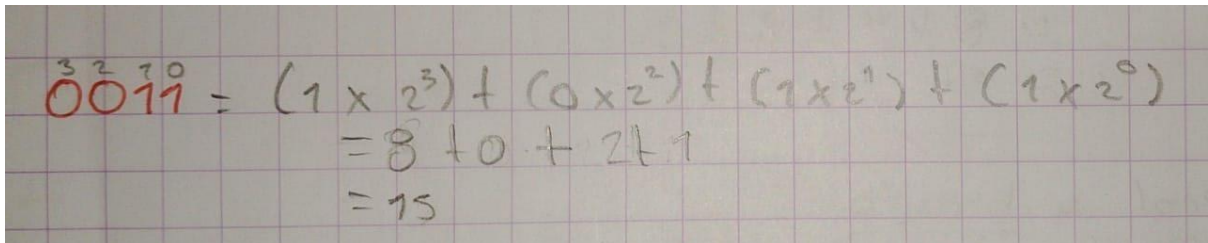 3 2 1 0
0011 = (1 × 2³) + (0 × 2²) + (1 × 2¹) + (1 × 2⁰)
= 8 + 0 + 2 + 1
= 15